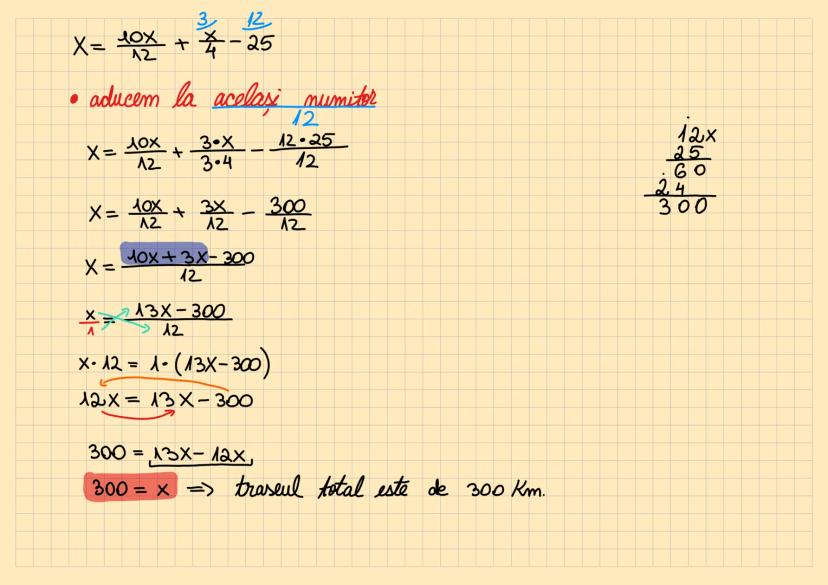 3 12
x = 10x/12 + x/4 - 25
• aducem la același numitor
12
x = 10x/12 + 3•x/3•4 - 12•25/12
x = 10x/12 + 3x/12 - 300/12
x = 10x + 3x - 300/12
x/1 = 13x - 300/12
x • 12 = 1 • (13x - 300)
12x = 13x - 300
300 = 13x - 12x
300 = x => traseul total este de 300 Km.
12x
25
60
24
300